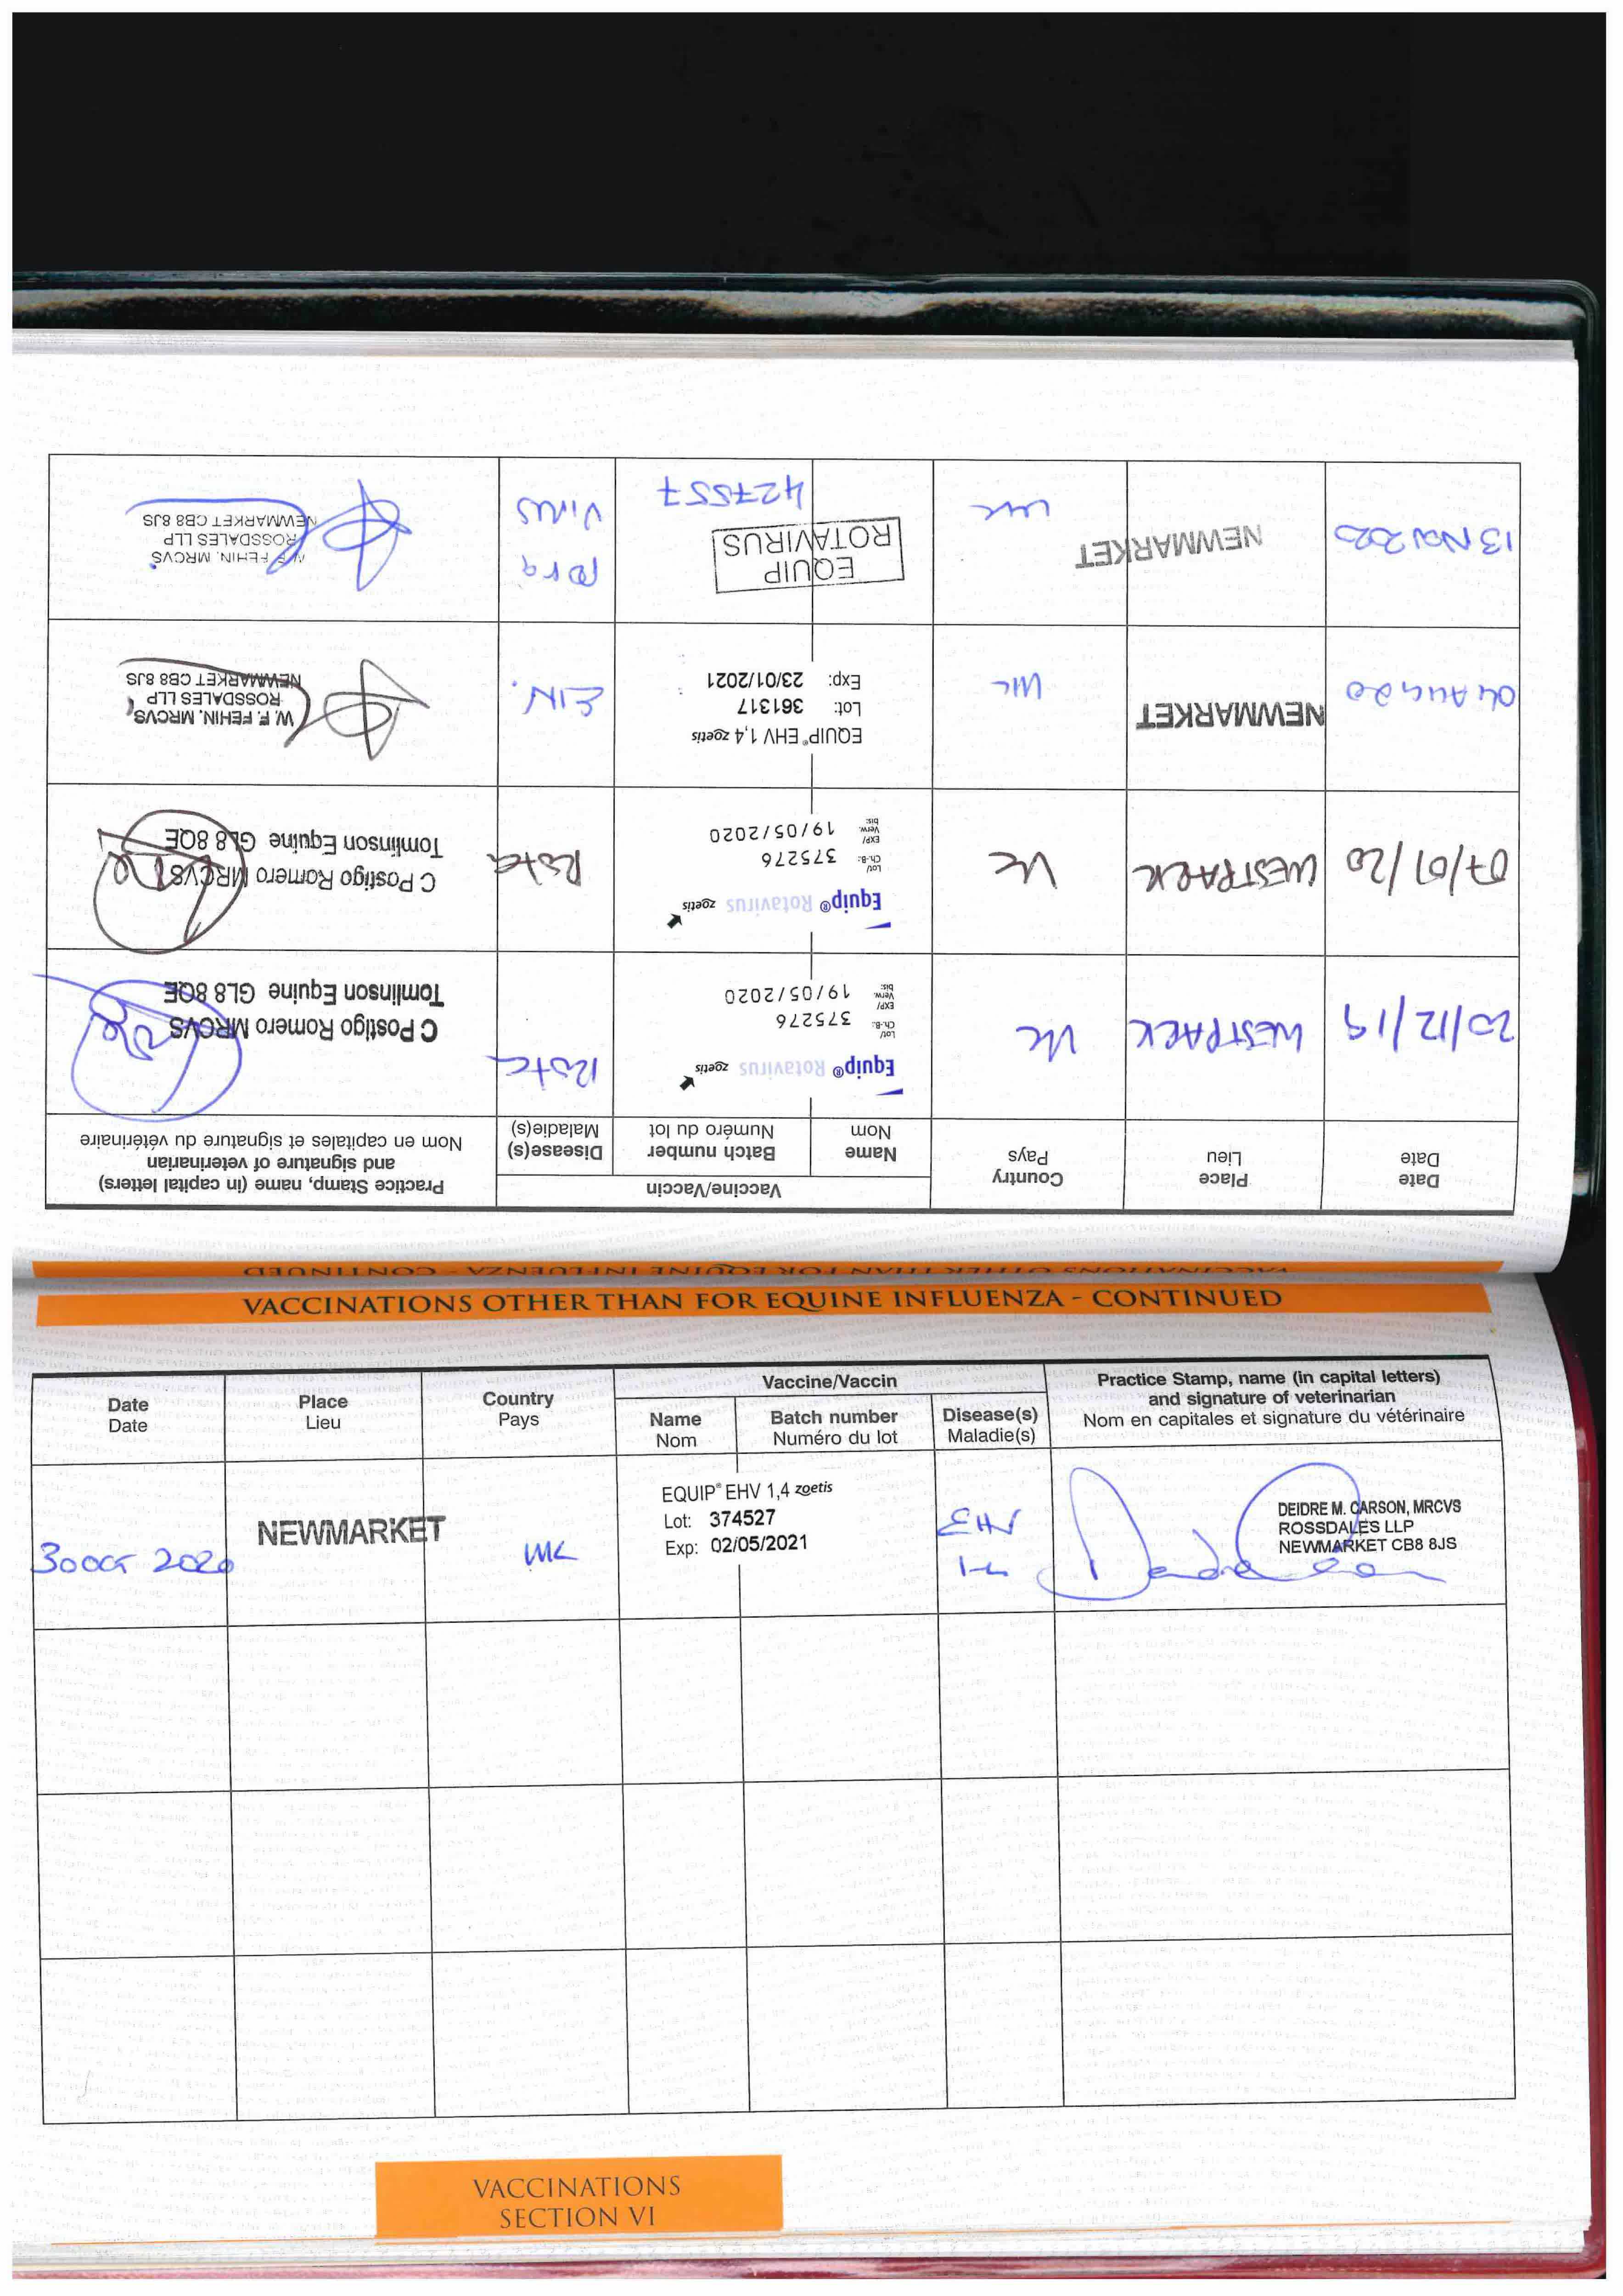 VACCINATIONS OTHER THAN FOR EQUINE INFLUENZA - CONTINUED
Date
Date
Place
Lieu
Country
Pays
Vaccine/Vaccin
Name
Nom
Batch number
Numéro du lot
Disease(s)
Maladie(s)
Practice Stamp, name (in capital letters)
and signature of veterinarian
Nom en capitales et signature du vétérinaire
20/12/19
WESTPARK
UK
Equip® Rotavirus zoetis
Lot/
Ch.-B.: 375276
EXP/
Verw.
bis: 19/05/2020
Rota
C Postigo Romero MRCVS
Tomlinson Equine GL8 8QE
07/01/20
WESTPARK
UK
Equip® Rotavirus zoetis
Lot/
Ch.-B.: 375276
EXP/
Verw.
bis: 19/05/2020
Rota
C Postigo Romero MRCVS
Tomlinson Equine GL8 8QE
04 AUG 20
NEWMARKET
UK
EQUIP® EHV 1,4 zoetis
Lot: 361317
Exp: 23/01/2021
W. F. FEHIN, MRCVS
ROSSDALES LLP
NEWMARKET CB8 8JS
13 NOV 2020
NEWMARKET
UK
EQUIP
ROTAVIRUS
427557
Rota
Virus
W. F. FEHIN, MRCVS
ROSSDALES LLP
NEWMARKET CB8 8JS
VACCINATIONS OTHER THAN FOR EQUINE INFLUENZA - CONTINUED
Date
Date
Place
Lieu
Country
Pays
Vaccine/Vaccin
Name
Nom
Batch number
Numéro du lot
Disease(s)
Maladie(s)
Practice Stamp, name (in capital letters)
and signature of veterinarian
Nom en capitales et signature du vétérinaire
30 OCT 2020
NEWMARKET
UK
EQUIP® EHV 1,4 zoetis
Lot: 374527
Exp: 02/05/2021
EHV
DEIDRE M. CARSON, MRCVS
ROSSDALES LLP
NEWMARKET CB8 8JS
VACCINATIONS
SECTION VI